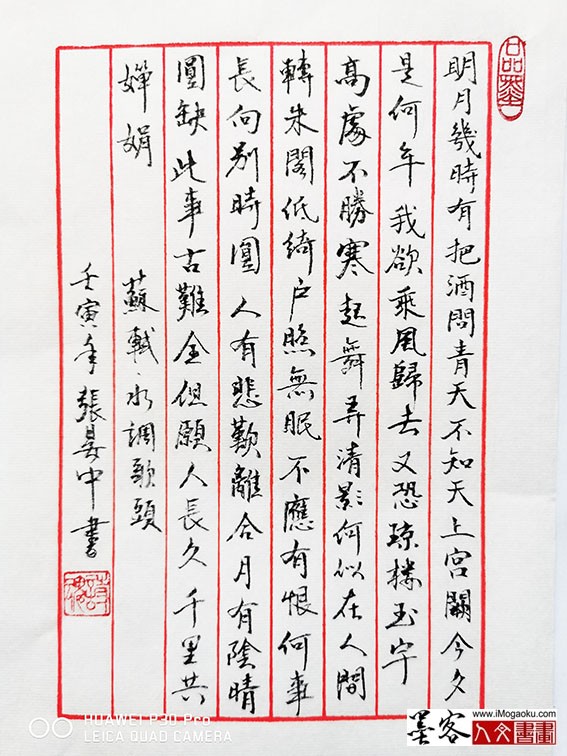 明月幾時有把酒問青天不知天上宮闕今夕
是何年我欲乘風歸去又恐瓊樓玉宇
高處不勝寒起舞弄清影何似在人間
轉朱閣低綺户照無眠不應有恨何事
長向别時圓人有悲歡離合月有陰晴
圓缺此事古難全但願人長久千里共
嬋娟
蘇軾·水調歌頭
壬寅年張晏中書
HUAWEI P30 Pro
LEICA QUAD CAMERA
墨客
www.iMogaoku.com
人文書畫